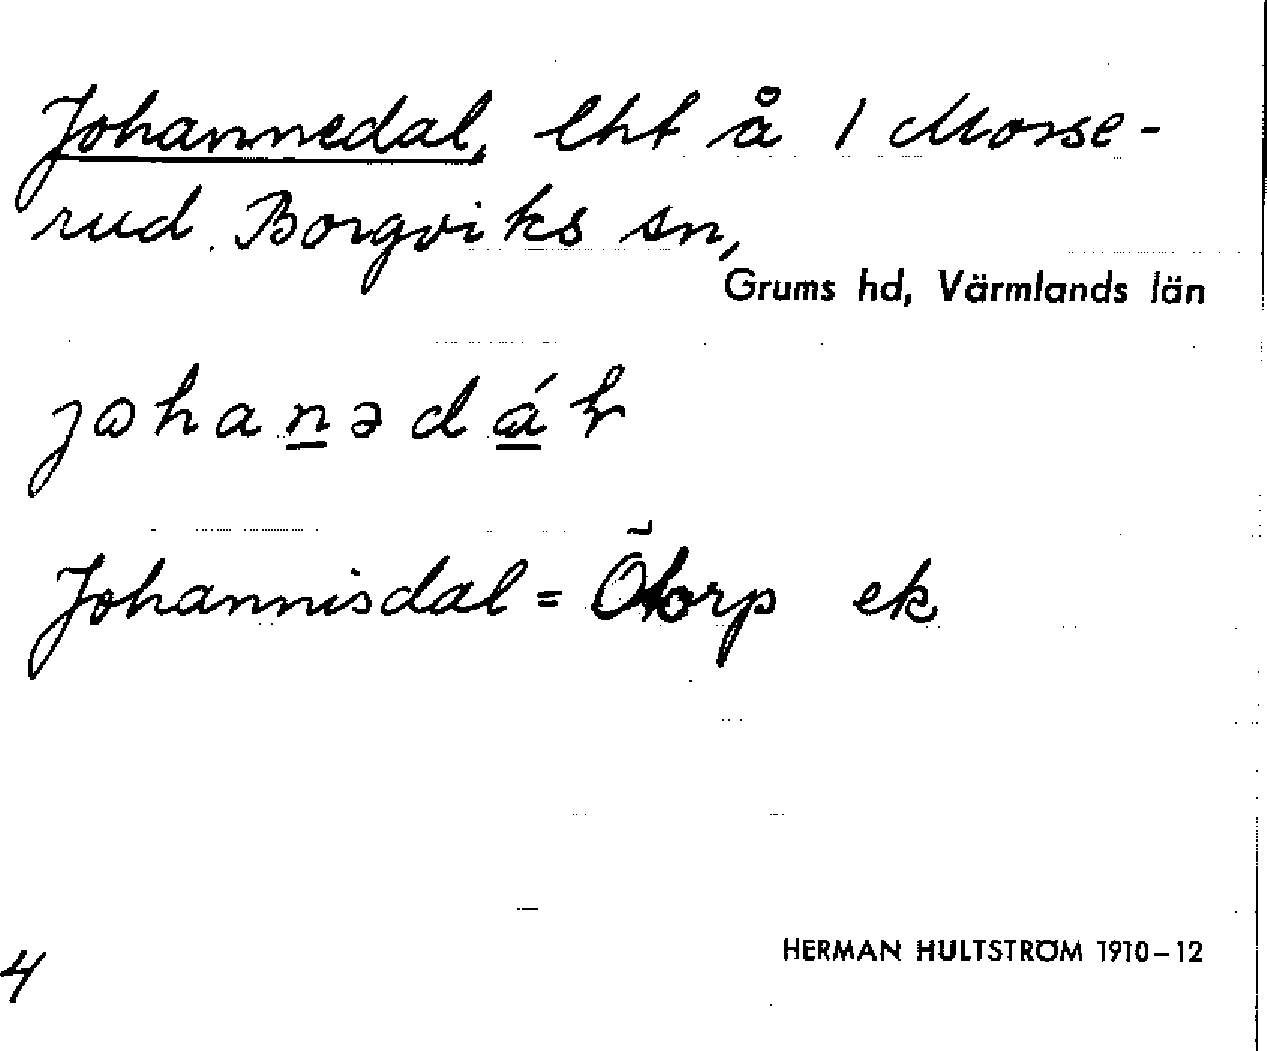 Johannedal, lht å 1 Morse-
rud Borgviks sn,
Grums hd, Värmlands län
Johannisdal = Ötorp ek
HERMAN HULTSTRÖM 1910–12
4